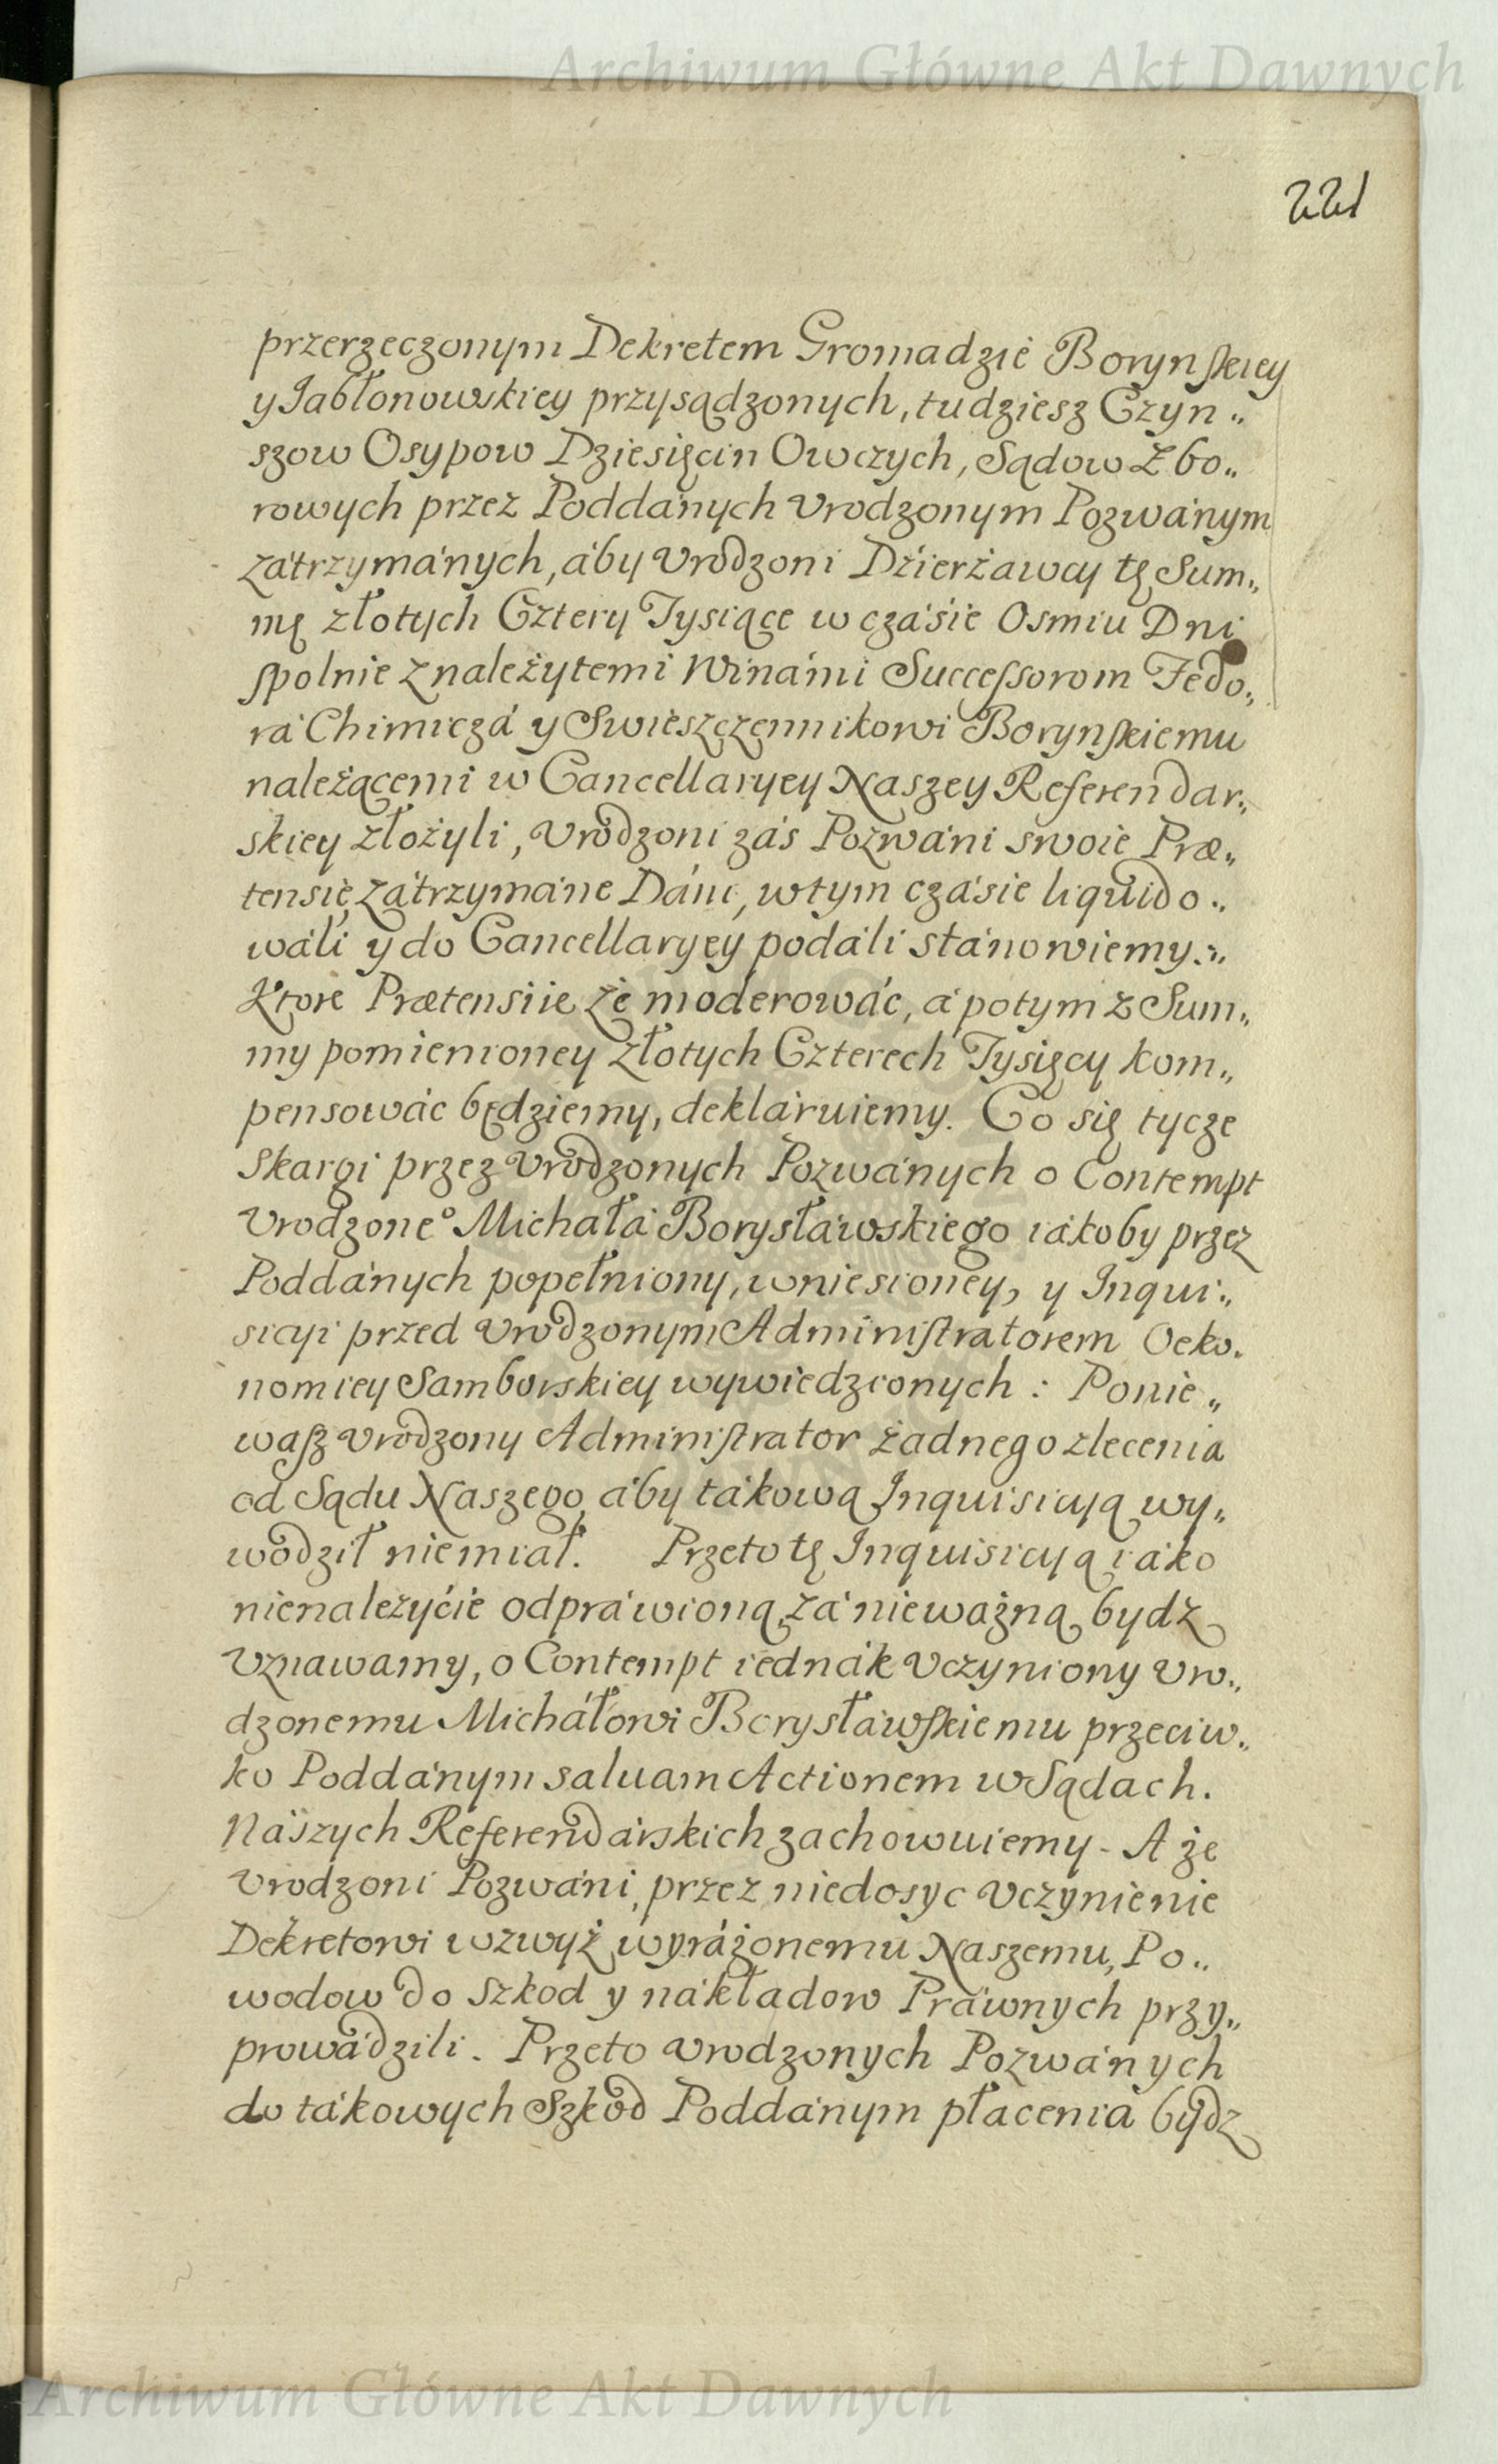 Archiwum Główne Akt Dawnych
221
przerzeczonym Dekretem Gromadzie Borynskiey
y Jabłonowskiey przysądzonych, tudziesz Czyn„
szow Osypow Dziesięcin Owczych, Sądow Zbo„
rowych przez Poddánych Vrodzonym Pozwánym
zátrzymánych, áby Vrodzoni Dzierżawcy tę Sum„
mę złotych Cztery Tysiące w czásie Osmiu Dni
spolnie z należytemi Winámi Successorom Fedo„
rá Chimiczá y Swieszczennikowi Borynskiemu
należącemi w Cancellaryey Naszey Referendar„
skiey złożyli, Vrodzoni zás Pozwáni swoie Præ„
tensię zátrzymáne Dáni, w tym czásie liquido„
wáli y do Cancellaryey podáli stánowiemy.„
Ktore Prætensiie że moderowác, á potym z Sum„
my pomienioney złotych Czterech Tysięcy kom„
pensowác będziemy, dekláruiemy. Co się tycze
Skargi przez Vrodzonych Pozwánych o Contempt
Vrodzone° Michałá Borysłáwskiego iákoby przez
Poddánych popełniony, wniesioney, y Inqui„
sicyi przed Vrodzonym Administratorem Oeko.
nomiey Samborskiey wywiedzionych: Ponie„
wasz Vrodzony Administrator żadnego zlecenia
od Sądu Naszego áby tákową Inquisicyą wy„
wodził niemiał. Przeto tę Inquisicyą iáko
nienależycie odpráwioną, zá nieważną bydz
Vznawamy, o Contempt iednák Vczyniony Vro„
dzonemu Micháłowi Borysłáwskiemu przeciw„
ko Poddánym saluam Actionem w Sądach.
Nászych Referendárskich zachowuiemy - A że
Vrodzoni Pozwáni, przez niedosyc Vczynienie
Dekretowi wzwyż wyráżonemu Naszemu, Po„
wodow do szkod y nákładow Práwnych przy„
prowádzili. Przeto Vrodzonych Pozwánych
do tákowych Szkod Poddánym płacenia bydz
Archiwum Główne Akt Dawnych